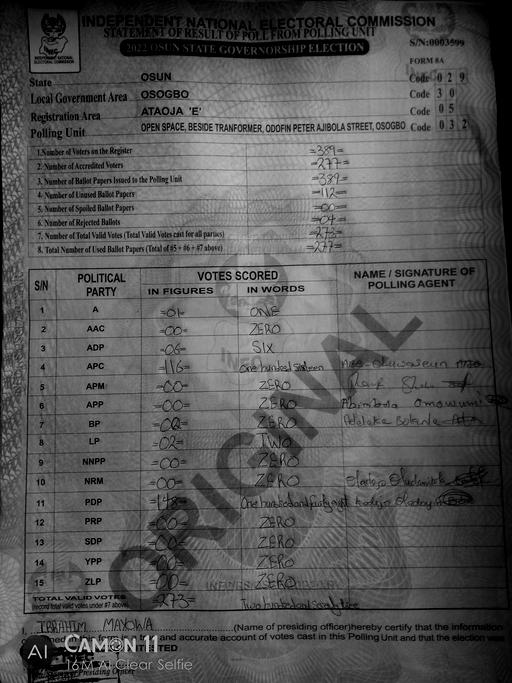 INDEPENDENT NATIONAL ELECTORAL COMMISSION
STATEMENT OF RESULT OF POLL FROM POLLING UNIT
2022 OSUN STATE GOVERNORSHIP ELECTION
S/N:0003599
FORM 8A
State OSUN Code 0 2 9
Local Government Area OSOGBO Code 3 0
Registration Area ATAOJA 'E' Code 0 5
Polling Unit OPEN SPACE, BESIDE TRANFORMER, ODOFIN PETER AJIBOLA STREET, OSOGBO Code 0 3 2
1.Number of Voters on the Register =389=
2. Number of Accredited Voters =277=
3. Number of Ballot Papers Issued to the Polling Unit =389=
4. Number of Unused Ballot Papers =112=
5. Number of Spoiled Ballot Papers =00=
6. Number of Rejected Ballots =04=
7. Number of Total Valid Votes (Total Valid Votes cast for all parties) =273=
8. Total Number of Used Ballot Papers (Total of #5 + #6 + #7 above) =277=
S/N POLITICAL PARTY VOTES SCORED NAME / SIGNATURE OF POLLING AGENT
IN FIGURES IN WORDS
1 A =01= ONE
2 AAC =00= ZERO
3 ADP =06= SIX
4 APC =116= One hundred sixteen
5 APM =00= ZERO
6 APP =00= ZERO Abimbola Omowumi
7 BP =00= ZERO Adeleke
8 LP =02= TWO
9 NNPP =00= ZERO
10 NRM =00= ZERO
11 PDP =148= One hundred and fourty eight
12 PRP =00= ZERO
13 SDP =00= ZERO
14 YPP =00= ZERO
15 ZLP =00= ZERO
TOTAL VALID VOTES =273= Two hundred and seventy three
(record total valid votes under #7 above)
ORIGINAL
I, IBRAHIM MAYOWA (Name of presiding officer)hereby certify that the information
and accurate account of votes cast in this Polling Unit and that the election was
TESTED
Presiding Officer
AI CAMON 11
16M AI Clear Selfie